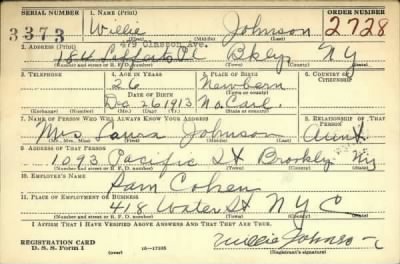 SERIAL NUMBER 1. NAME (Print) ORDER NUMBER
3373 Willie Johnson 2728
(First) (Middle) (Last)
479 Classon Ave.
2. ADDRESS (Print)
184 Pl Bklyn NY
(Number and street or R. F. D. number) (Town) (County) (State)
3. TELEPHONE 4. AGE IN YEARS 5. PLACE OF BIRTH 6. COUNTRY OF CITIZENSHIP
26 Newbern
DATE OF BIRTH (Town or county)
Dec 26 1913 No Carl.
(Exchange) (Number) (Mo.) (Day) (Yr.) (State or country)
7. NAME OF PERSON WHO WILL ALWAYS KNOW YOUR ADDRESS 8. RELATIONSHIP OF THAT PERSON
Mrs Laura Johnson Aunt
(Mr., Mrs., Miss) (First) (Middle) (Last)
9. ADDRESS OF THAT PERSON
1093 Pacific St Brookly NY
(Number and street or R. F. D. number) (Town) (County) (State)
10. EMPLOYER'S NAME
Sam Cohen
11. PLACE OF EMPLOYMENT OR BUSINESS
418 Water St N Y C
(Number and street or R. F. D. number) (Town) (County) (State)
I AFFIRM THAT I HAVE VERIFIED ABOVE ANSWERS AND THAT THEY ARE TRUE.
REGISTRATION CARD
D. S. S. Form 1 (over) 16—17105 Willie Johnson